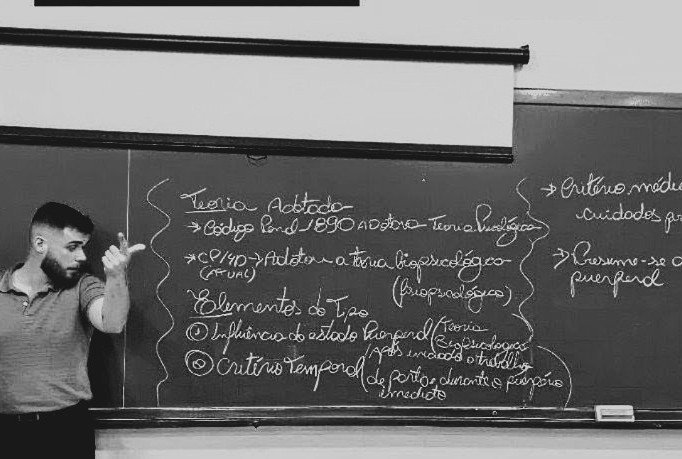 Teoria Adotada
→ Código Penal 1890 Adotava Teoria Psicológica
→ CP/40 → Adotou a teoria biopsicológica
(ATUAL)
(fisiopsicológica)
Elementos do Tipo
① Influência do estado Puerperal (Teoria
Biopsicológica
② Critério Temporal (após iniciado o trabalho
de parto e durante o puerpério
imediato
→ Critério
cuidados
→ Presume-se
puerperal